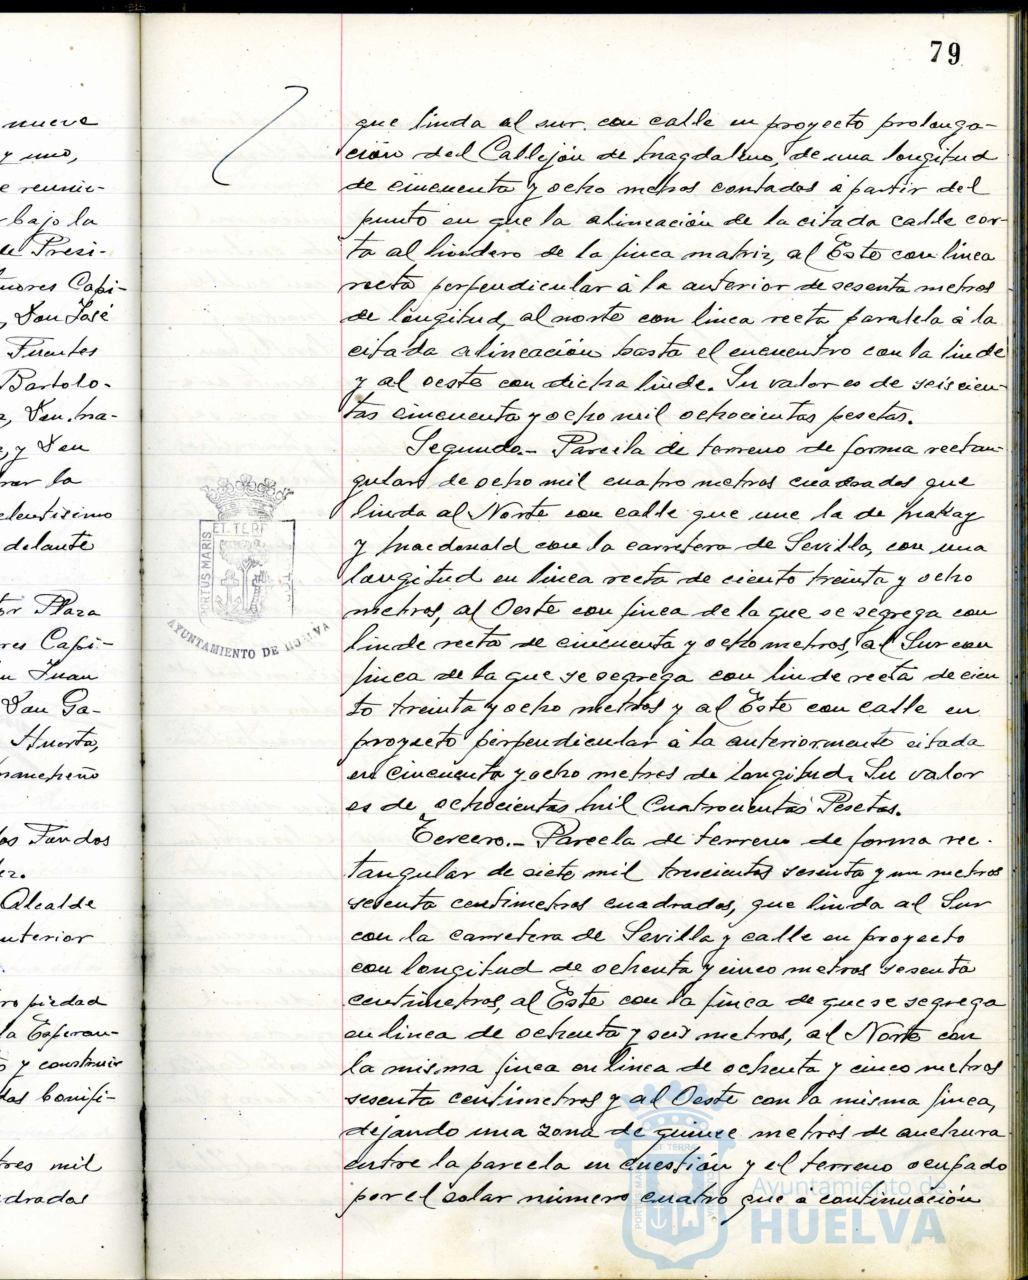 79
nueve
y uno,
e reunie-
bajo la
de Presi-
ñores Capi-
, Don José
Fuentes
Bartolo-
, Don Ma-
, y Don
rar la
celentísimo
delante
tor Plaza
res Capi-
n Juan
Don Ga-
Huerta,
mancheño
los Fondos
ez.
Alcalde
anterior
ropiedad
la Esperan-
o y construir
das bonifi-
tres mil
adrados
que linda al sur con calle en proyecto prolonga-
ción del Callejón de Magdaleno, de una longitud
de cincuenta y ocho metros contados á partir del
punto en que la alineación de la citada calle cor-
ta al lindero de la finca matriz, al Este con linea
recta perpendicular á la anterior de sesenta metros
de longitud, al norte con linea recta paralela á la
citada alineación hasta el encuentro con la linde
y al oeste con dicha linde. Su valor es de seiscien-
tas cincuenta y ocho mil ochocientas pesetas.
Segundo.- Parcela de terreno de forma rectan-
gular de ocho mil cuatro metros cuadrados que
linda al Norte con calle que une la de Makay
y Macdonald con la carretera de Sevilla, con una
longitud en linea recta de ciento treinta y ocho
metros, al Oeste con finca de la que se segrega con
linde recta de cincuenta y ocho metros, al Sur con
finca de la que se segrega con linde recta de cien
to treinta y ocho metros y al Este con calle en
proyecto perpendicular á la anteriormente citada
en cincuenta y ocho metros de longitud. Su valor
es de ochocientas mil Cuatrocientas Pesetas.
Tercero.- Parcela de terreno de forma rec-
tangular de siete mil trescientos sesenta y un metros
sesenta centimetros cuadrados, que linda al Sur
con la carretera de Sevilla y calle en proyecto
con longitud de ochenta y cinco metros sesenta
centimetros, al Este con la finca de que se segrega
en linea de ochenta y seis metros, al Norte con
la misma finca en linea de ochenta y cinco metros
sesenta centimetros y al Oeste con la misma finca,
dejando una zona de quince metros de anchura
entre la parcela en cuestion y el terreno ocupado
por el solar número cuatro que a continuación
PORTUS MARIS
ET TERR
AYUNTAMIENTO DE HUELVA
Ayuntamiento de
HUELVA